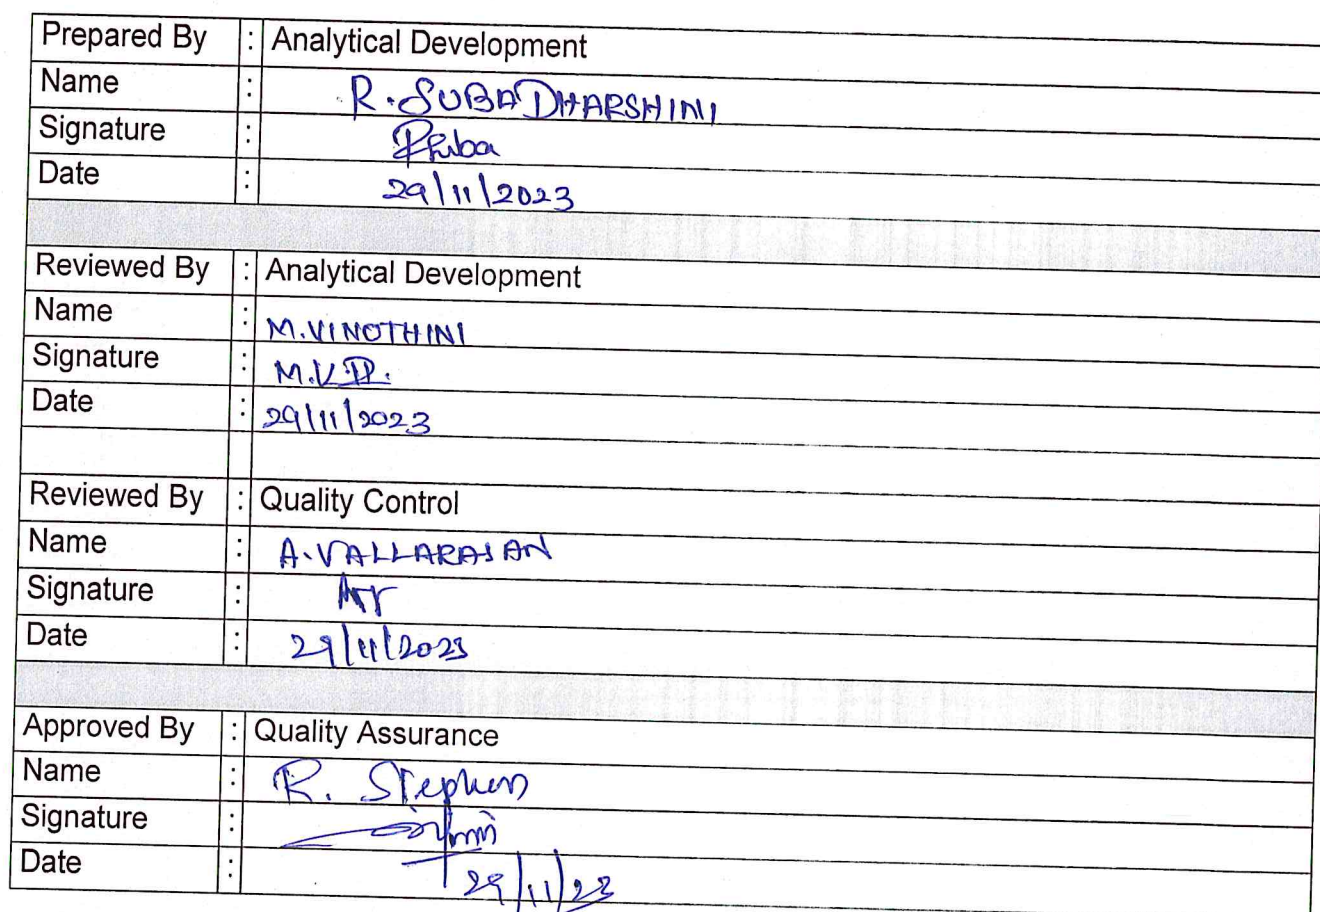 Prepared By : Analytical Development
Name : R. SUBADHARSHINI
Signature :
Date : 29/11/2023
Reviewed By : Analytical Development
Name : M.VINOTHINI
Signature :
Date : 29/11/2023
Reviewed By : Quality Control
Name : A.VALLARASAN
Signature :
Date : 29/11/2023
Approved By : Quality Assurance
Name : R. Stephen
Signature :
Date : 29/11/23